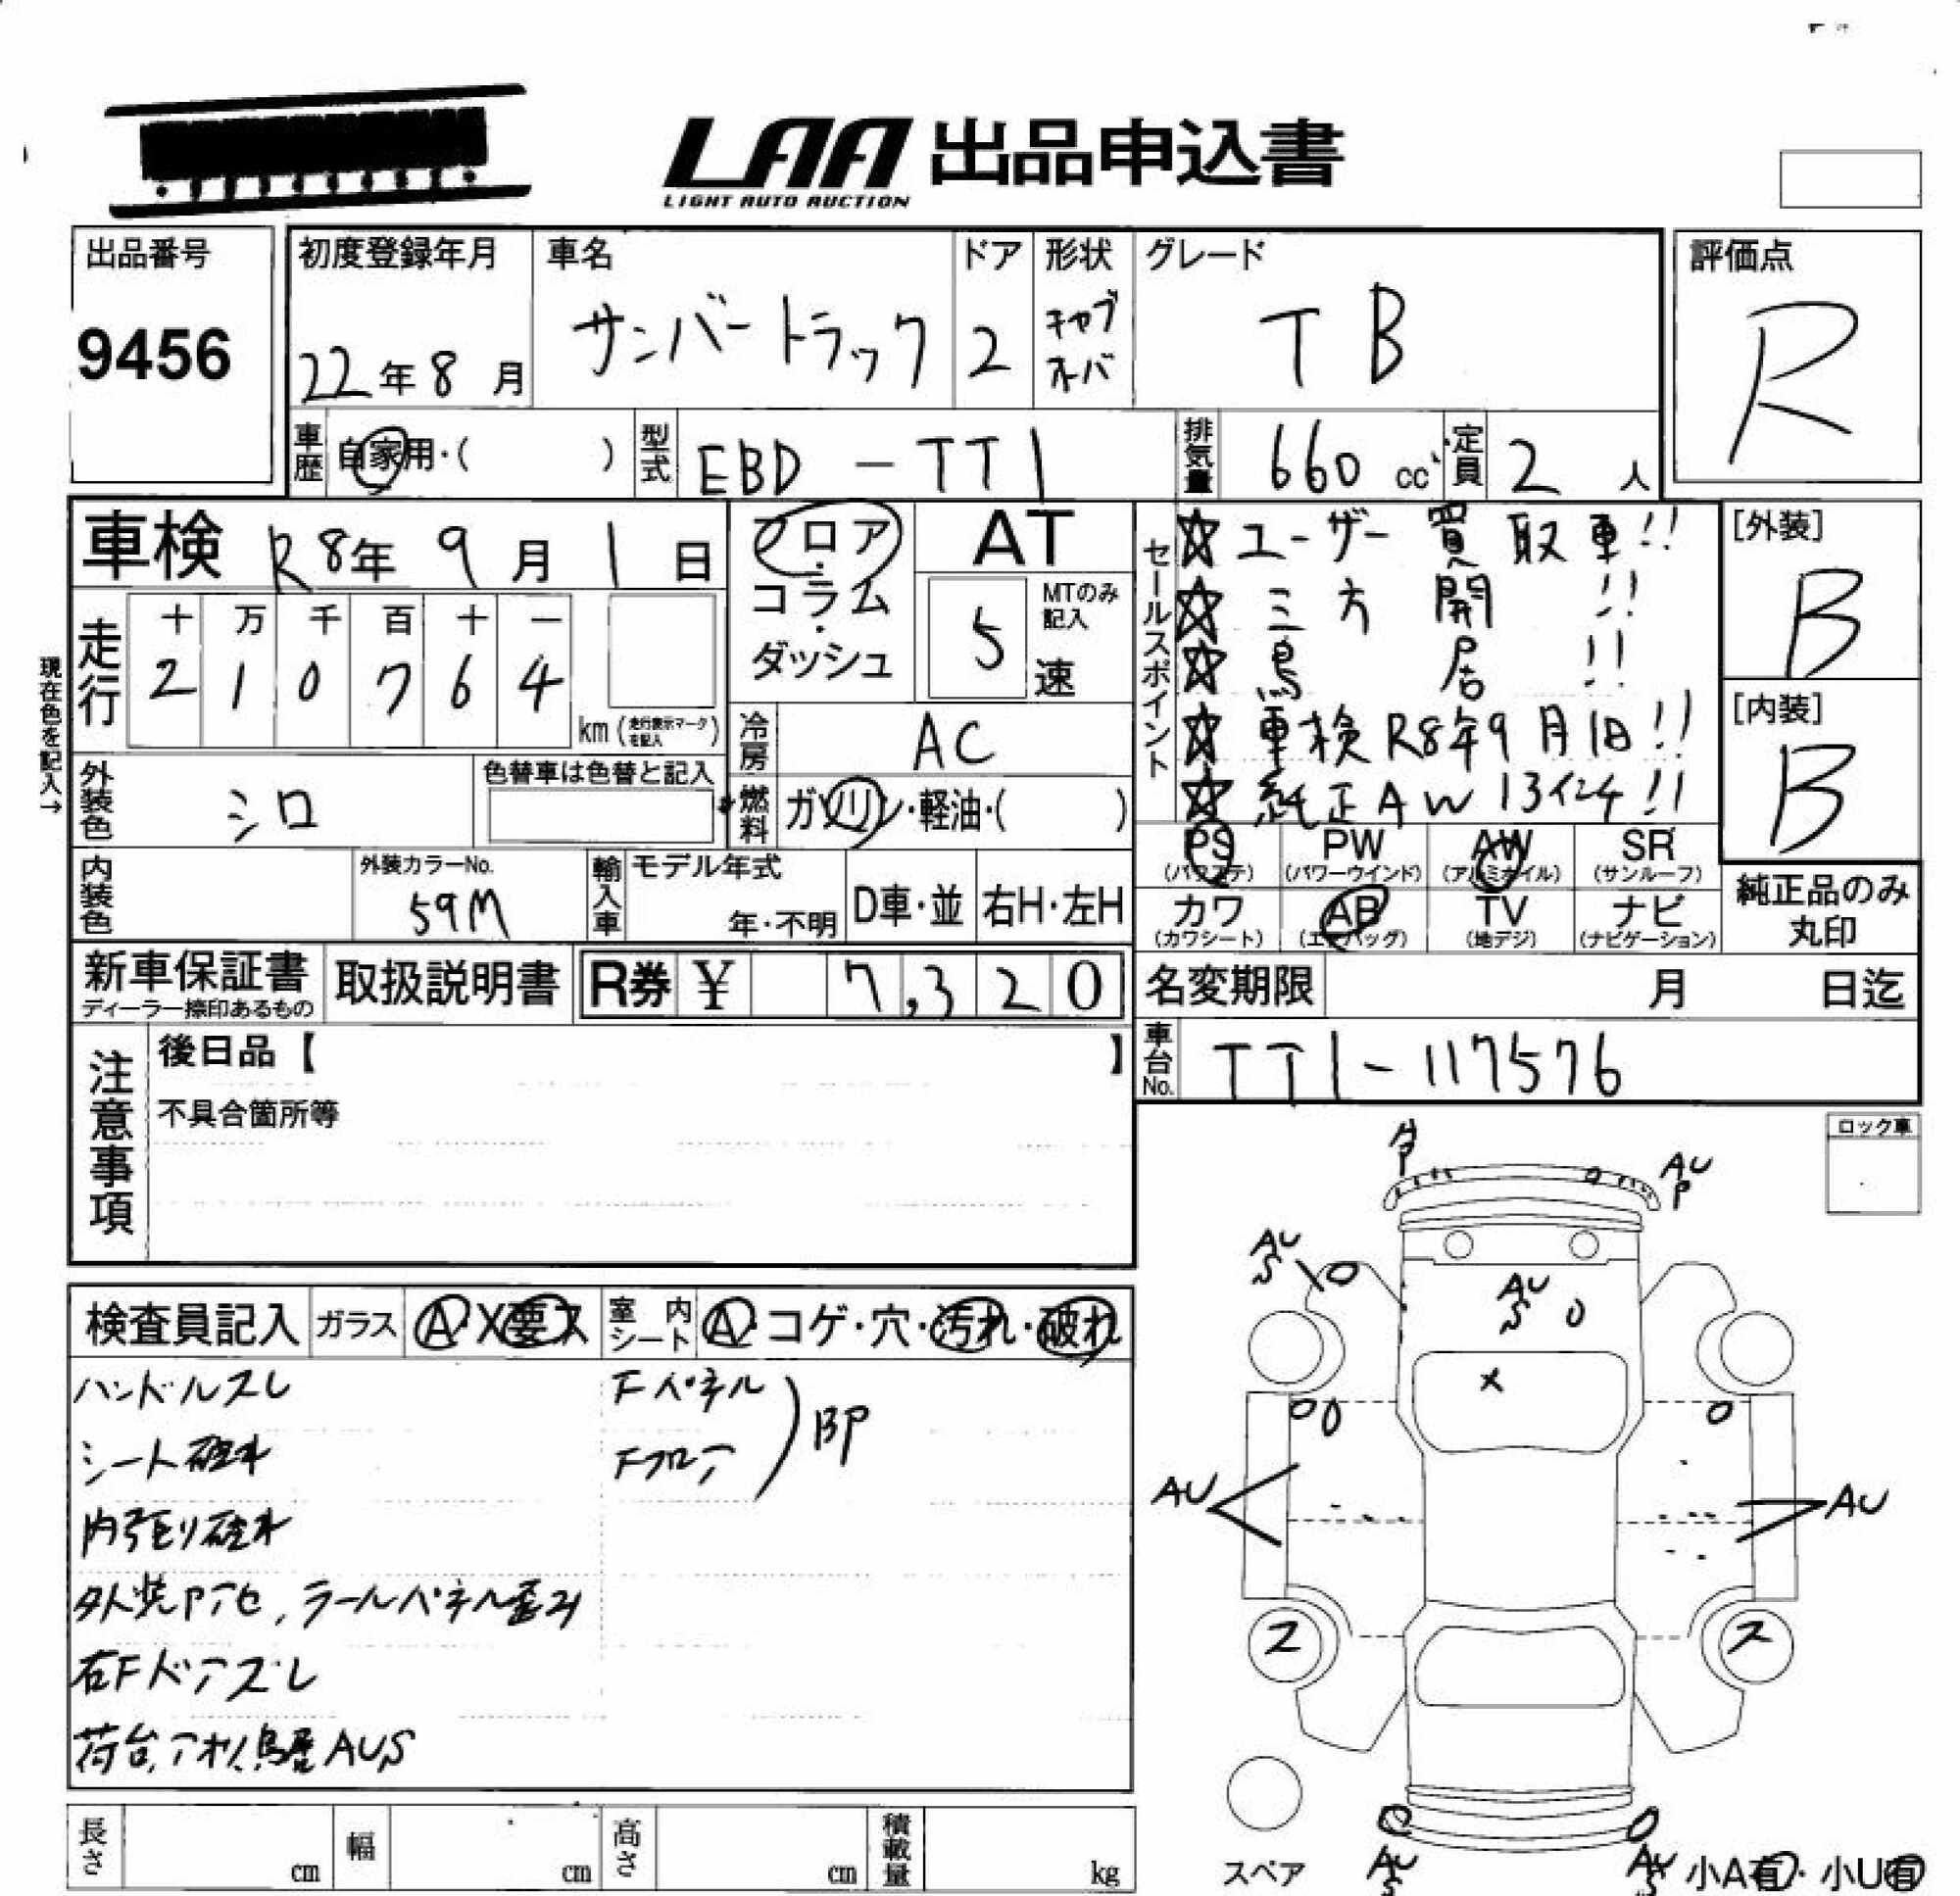 LAA 出品申込書
LIGHT AUTO AUCTION
出品番号
9456
初度登録年月
22年8月
車名
サンバートラック
ドア
2
形状
キャブ
オーバ
グレード
TB
評価点
R
車歴
自家用・( )
型式
EBD-TT1
排気量
660 cc
定員
2人
車検 R8年9月1日
フロア・コラム・ダッシュ
AT
5速
MTのみ記入
現在色を記入→
走行
十 万 千 百 十 一
2 1 0 7 6 4
km (走行表示マークを記入)
冷房
AC
燃料
ガソリン・軽油・( )
外装色
シロ
色替車は色替と記入
内装色
外装カラーNo.
59M
輸入車
モデル年式
年・不明
D車・並
右H・左H
セールスポイント
☆ユーザー買取車!!
☆三方開!!
☆鳥居!!
☆車検R8年9月1日!!
☆純正AW13インチ!!
[外装]
B
[内装]
B
PS
(パワステ)
PW
(パワーウインド)
AW
(アルミホイル)
SR
(サンルーフ)
カワ
(カワシート)
AB
(エアバッグ)
TV
(地デジ)
ナビ
(ナビゲーション)
純正品のみ
丸印
新車保証書
ディーラー捺印あるもの
取扱説明書
R券 ¥ 7,320
名変期限 月 日迄
車台No.
TT1-117576
注意事項
後日品【 】
不具合箇所等
ロック車
検査員記入
ガラス
A・X要ス
室内シート
A・コゲ・穴・汚れ・破れ
ハンドルスレ
シート破れ
内張り破れ
外装Pアセ、テールパネル歪み
右Fドアズレ
荷台、アオリ、鳥居AUS
Fパネル
Fフロア
BP
AU
P
AU
S
AU
S
X
AU
AU
ス
ス
スペア
AU
S
AU
S
小A有・小U有
長さ cm
幅 cm
高さ cm
積載量 kg